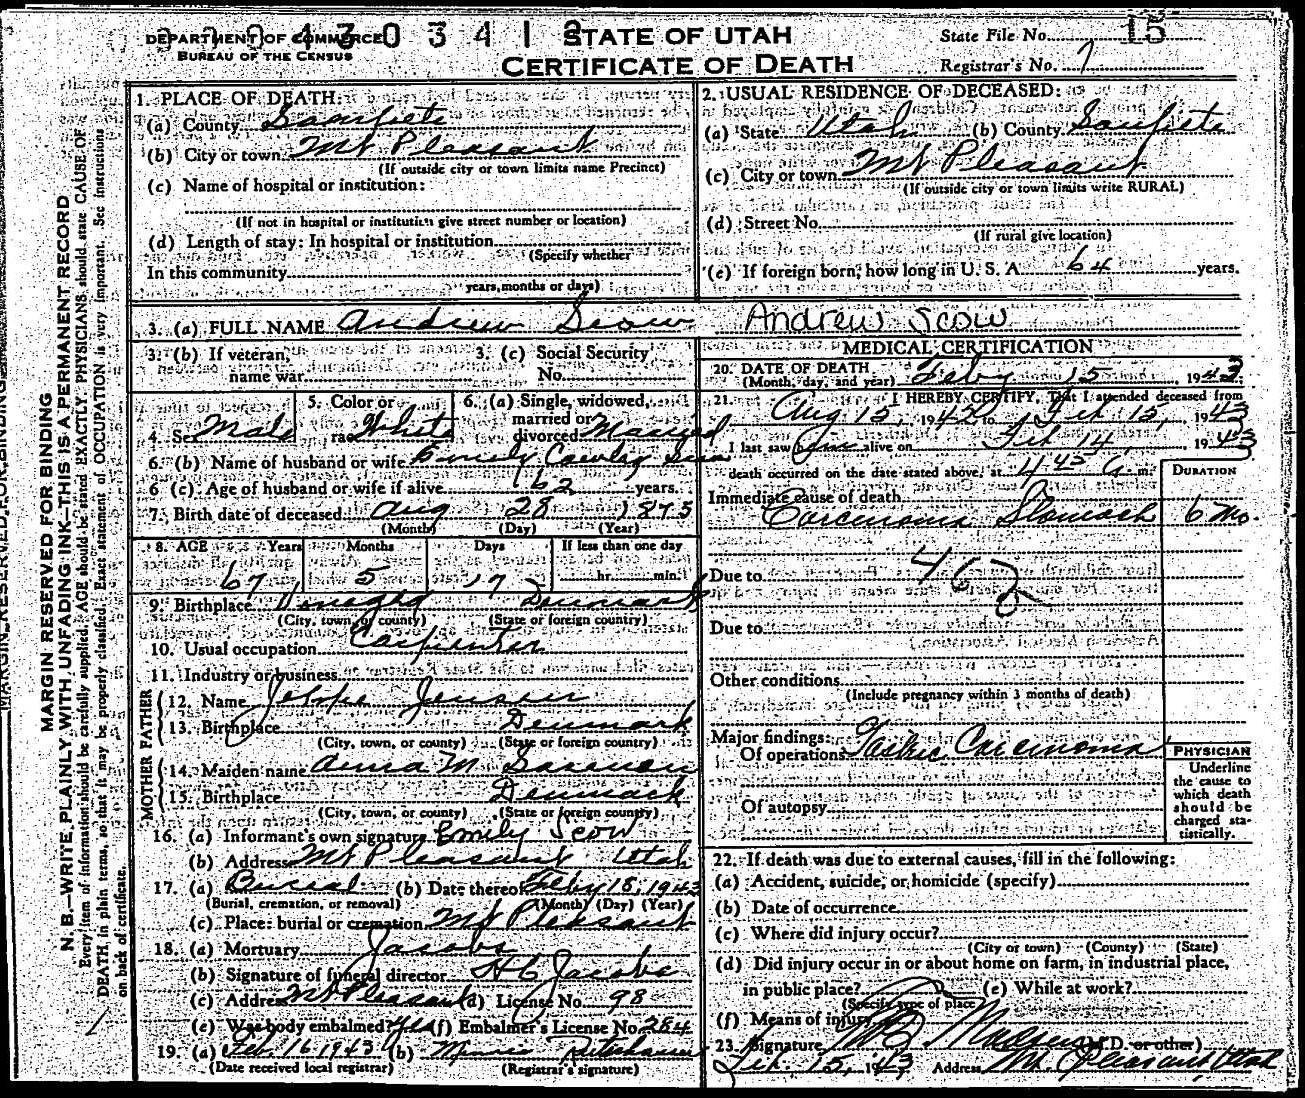 DEPARTMENT OF COMMERCE
BUREAU OF THE CENSUS
STATE OF UTAH
CERTIFICATE OF DEATH
State File No. 15
Registrar's No. 7
1. PLACE OF DEATH:
(a) County Sanpete
(b) City or town Mt Pleasant
(If outside city or town limits name Precinct)
(c) Name of hospital or institution:
(If not in hospital or institution give street number or location)
(d) Length of stay: In hospital or institution
(Specify whether
In this community
years, months or days)
2. USUAL RESIDENCE OF DECEASED:
(a) State Utah (b) County Sanpete
(c) City or town Mt Pleasant
(If outside city or town limits write RURAL)
(d) Street No.
(If rural give location)
(e) If foreign born, how long in U. S. A. 64 years.
3. (a) FULL NAME Andrew Scow Andrew Scow
3. (b) If veteran, name war
3. (c) Social Security No.
4. Sex Male 5. Color or race White 6. (a) Single, widowed, married or divorced Married
6. (b) Name of husband or wife Emily Cawley Scow
6 (c). Age of husband or wife if alive 62 years.
7. Birth date of deceased Aug 28 1875
(Month) (Day) (Year)
8. AGE Years Months Days If less than one day
67 5 17 hr. min.
9. Birthplace Denmark
(City, town, or county) (State or foreign country)
10. Usual occupation Carpenter
11. Industry or business
FATHER
12. Name Jeppe Jensen
13. Birthplace Denmark
(City, town, or county) (State or foreign country)
MOTHER
14. Maiden name Anna M. Sorensen
15. Birthplace Denmark
(City, town, or county) (State or foreign country)
16. (a) Informant's own signature Emily Scow
(b) Address Mt Pleasant Utah
17. (a) Burial (b) Date thereof Feby 18, 1943
(Burial, cremation, or removal) (Month) (Day) (Year)
(c) Place: burial or cremation Mt Pleasant
18. (a) Mortuary Jacobs
(b) Signature of funeral director H C Jacobs
(c) Address Mt Pleasant (d) License No. 98
(e) Was body embalmed? Yes (f) Embalmer's License No. 284
19. (a) Feb. 16 1943 (b) Minnie
(Date received local registrar) (Registrar's signature)
MEDICAL CERTIFICATION
20. DATE OF DEATH
(Month, day, and year) Feby 15, 1943
21. I HEREBY CERTIFY, That I attended deceased from
Aug 15, 1942 to Feb. 15, 1943
I last saw him alive on Feb 14, 1943
death occurred on the date stated above, at 4 45 A. m.
DURATION
Immediate cause of death
Carcinoma Stomach 6 mo.
Due to
46
Due to
Other conditions
(Include pregnancy within 3 months of death)
Major findings:
Of operations Gastric Carcinoma
Of autopsy
PHYSICIAN
Underline
the cause to
which death
should be
charged sta-
tistically.
22. If death was due to external causes, fill in the following:
(a) Accident, suicide, or homicide (specify)
(b) Date of occurrence
(c) Where did injury occur?
(City or town) (County) (State)
(d) Did injury occur in or about home on farm, in industrial place,
in public place? (e) While at work?
(Specify type of place)
(f) Means of injury
23. Signature Madsen (M.D. or other)
Feb. 15, 1943 Address Mt. Pleasant, Utah
MARGIN RESERVED FOR BINDING
N. B.—WRITE PLAINLY WITH UNFADING INK—THIS IS A PERMANENT RECORD
Every item of information should be carefully supplied. AGE should be stated EXACTLY. PHYSICIANS should state CAUSE OF
DEATH in plain terms, so that it may be properly classified. Exact statement of OCCUPATION is very important. See instructions
on back of certificate.
MARGIN RESERVED FOR BINDING